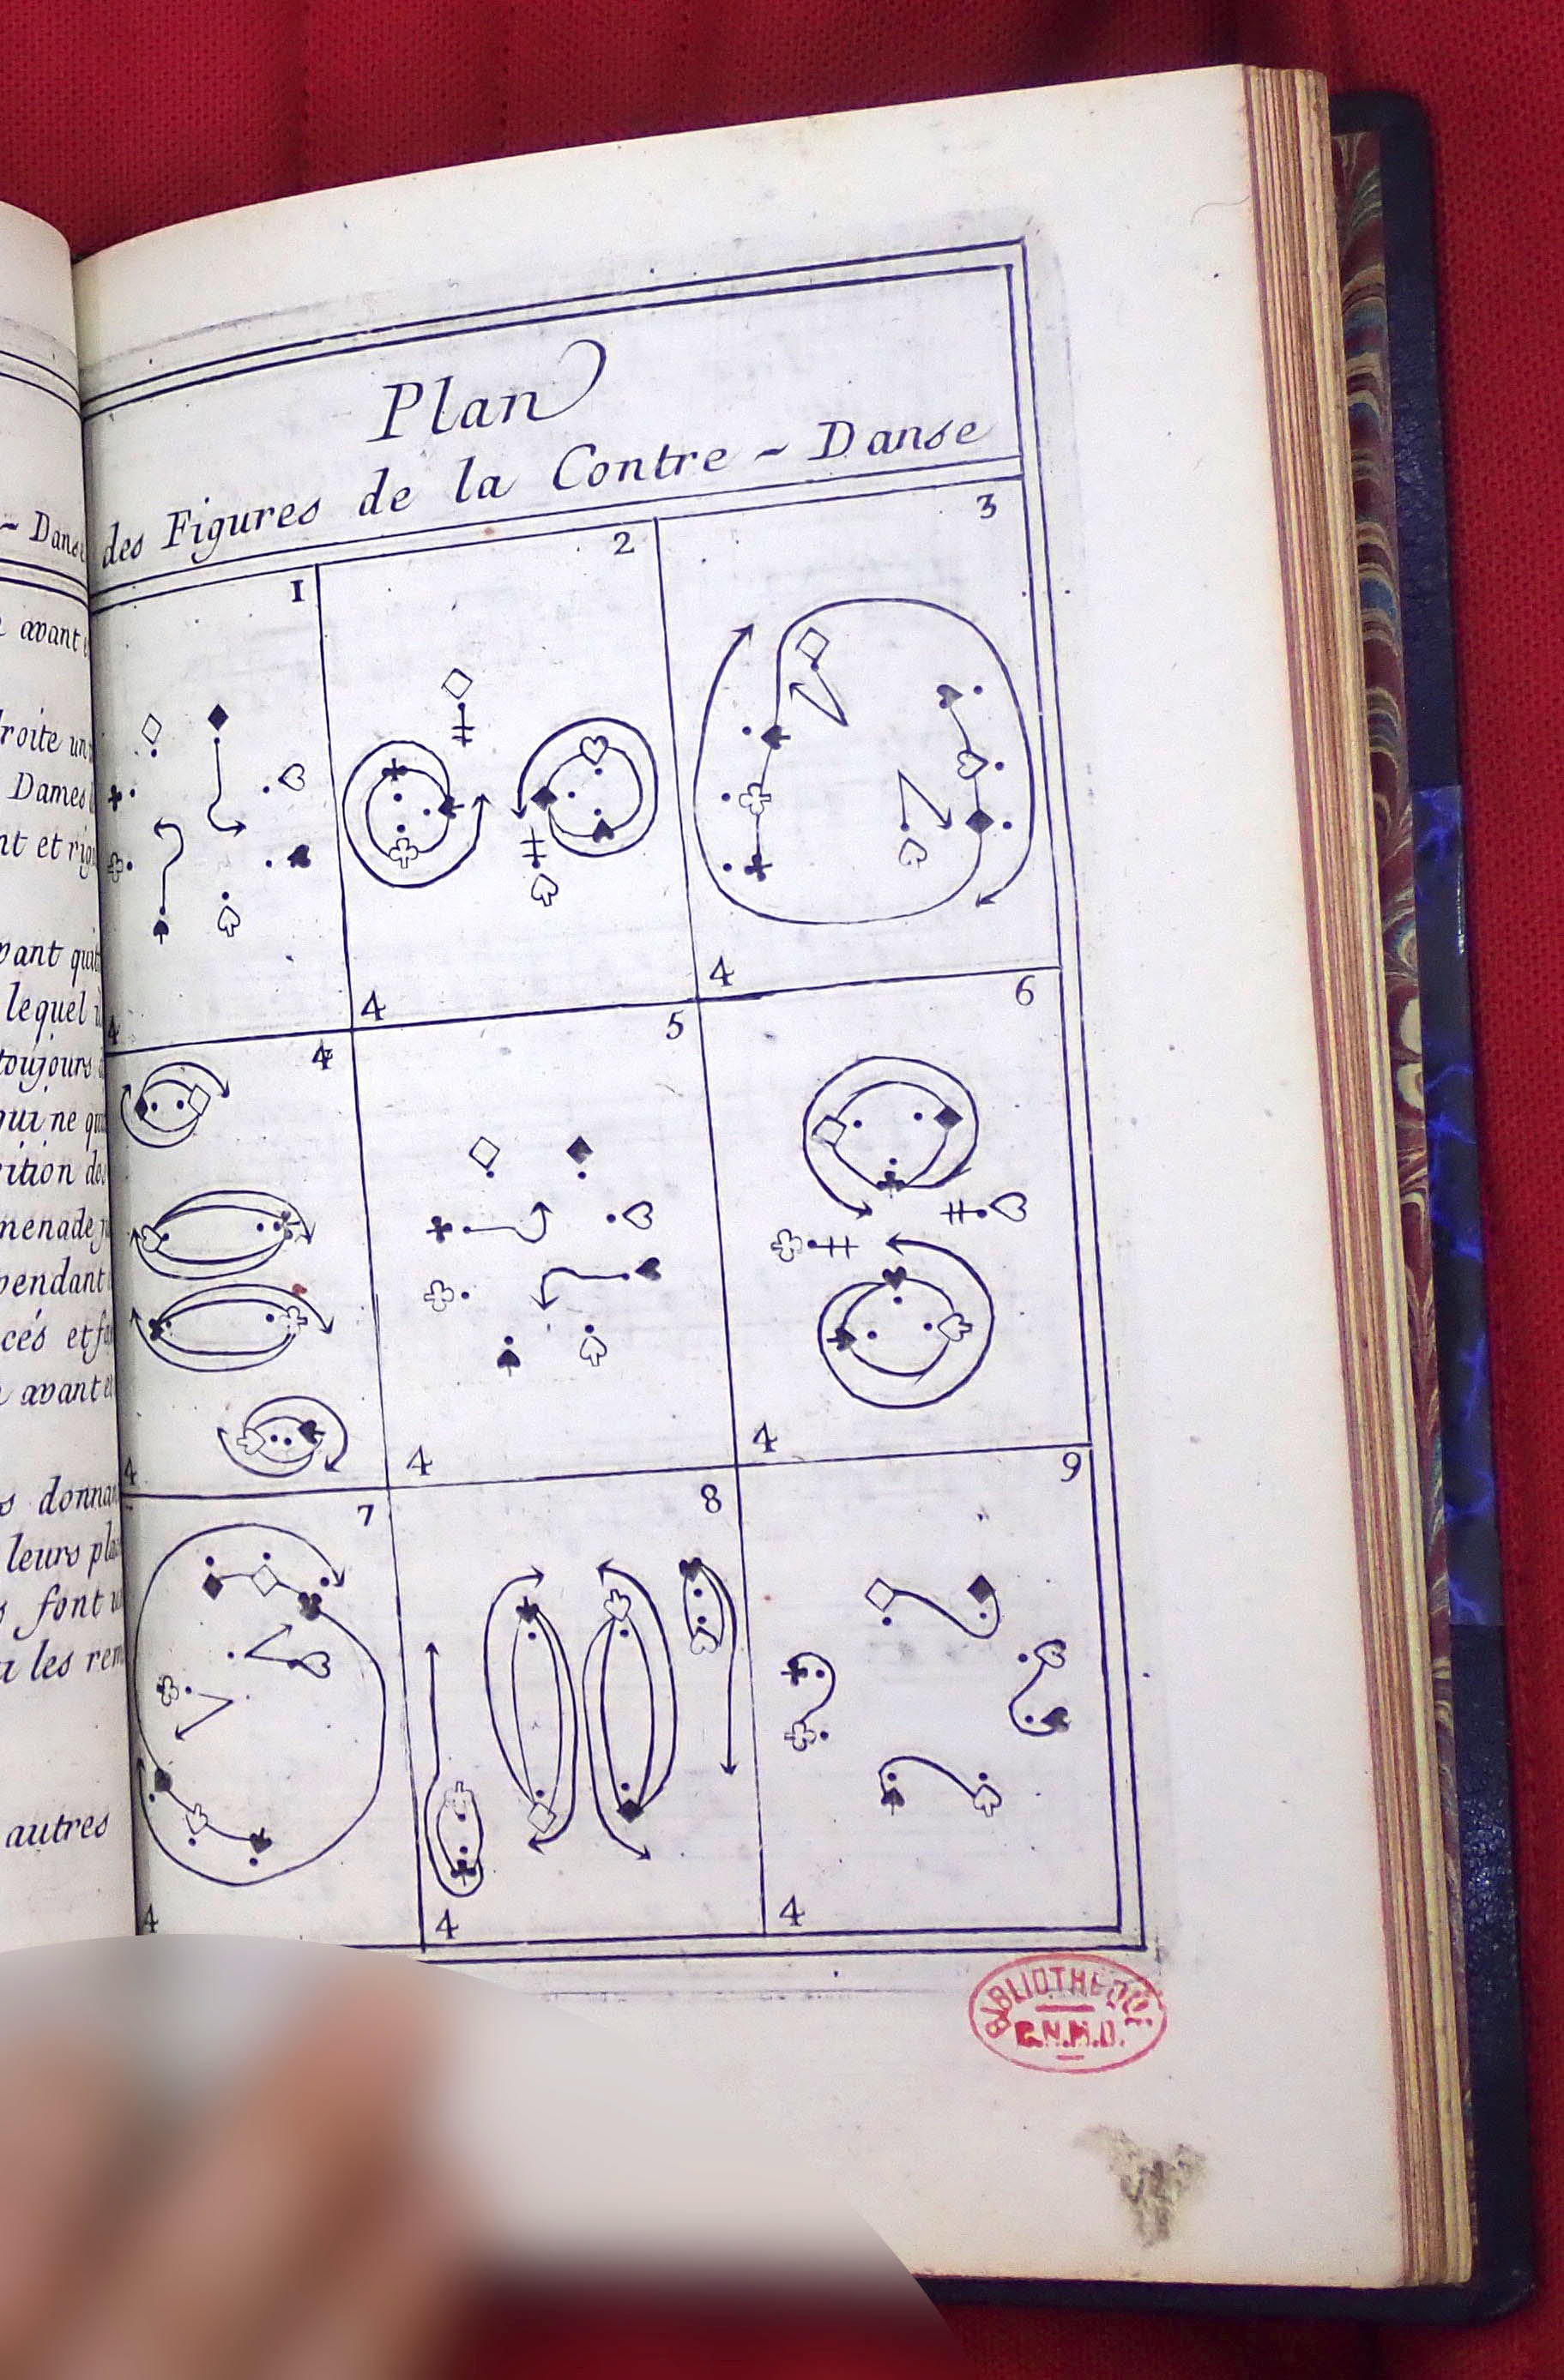 - Danse
avant
droite un
Dames
nt et rig
vant quit
lequel
toujours
qui ne qu
sition des
menade
pendant
cés et f
avant et
s donnan
leurs pla
font u
a les rem
autres
Plan
des Figures de la Contre - Danse
1
2
3
4
4
4
4
5
6
4
4
4
7
8
9
4
4
4
BIBLIOTHEQUE
C.N.M.D.